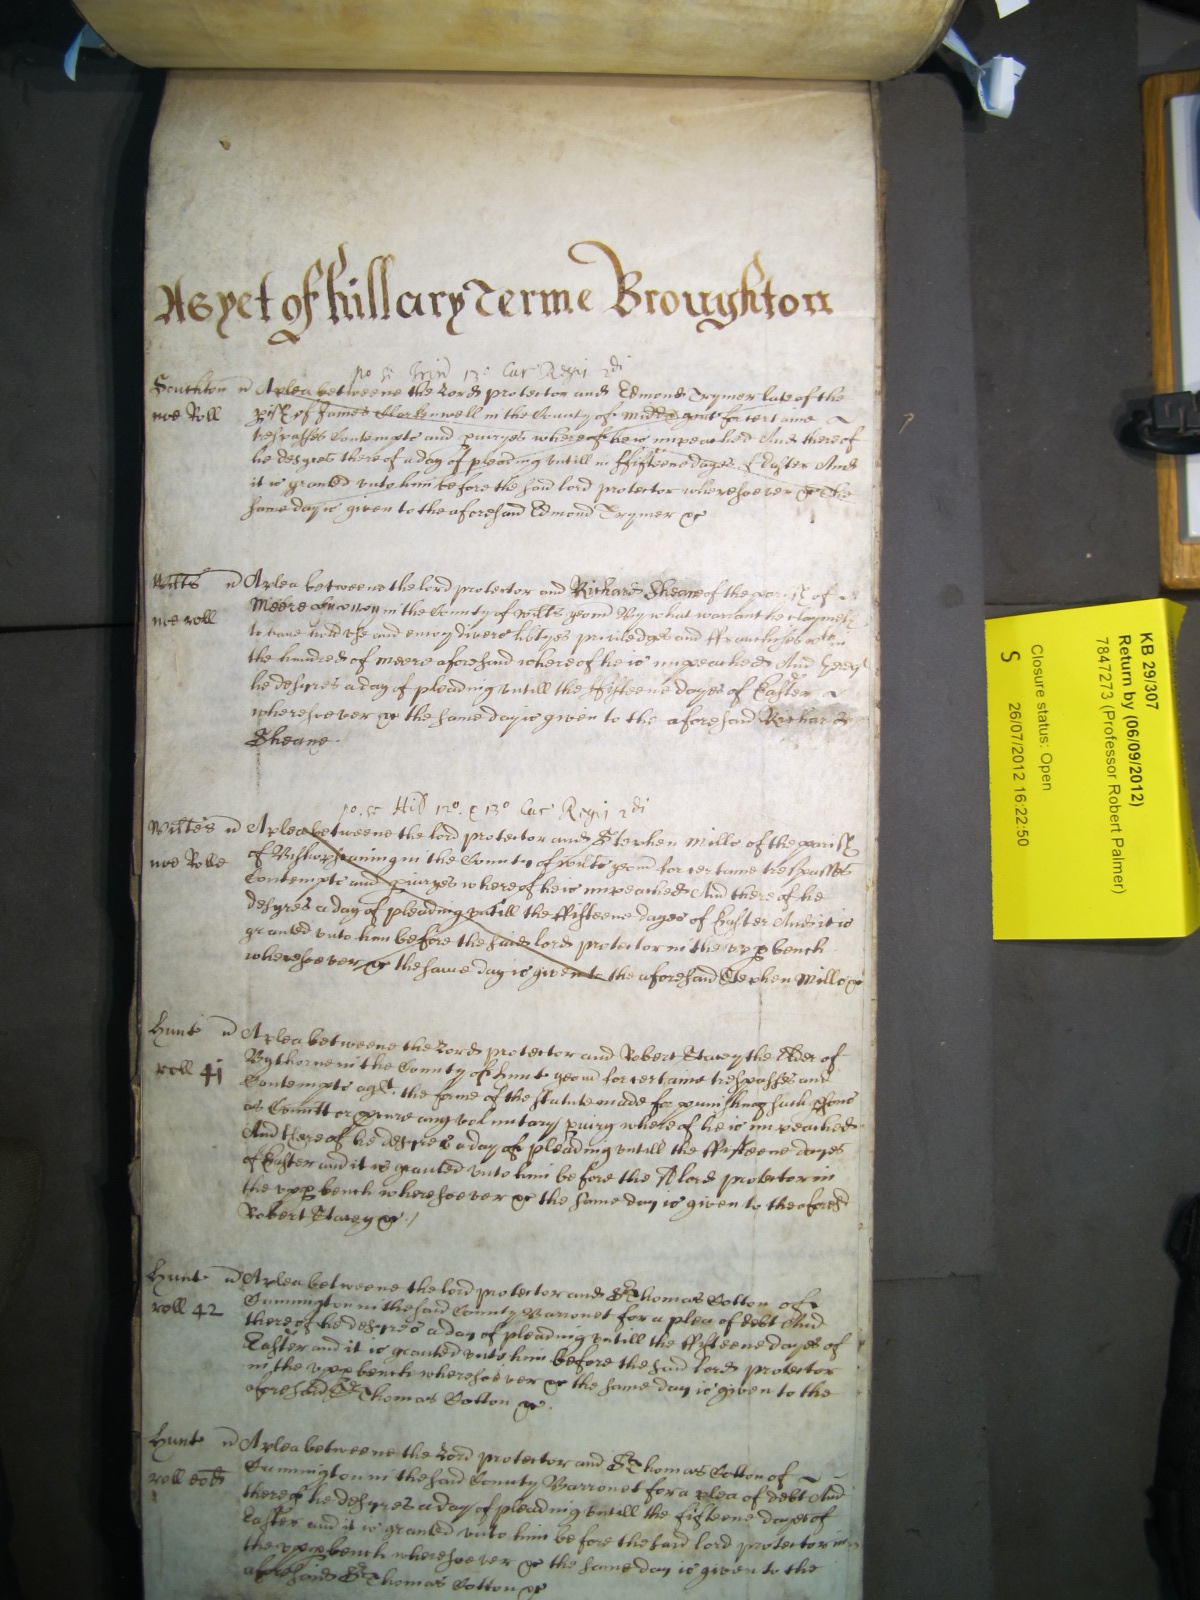 As yet of hillary Terme Broughton
Car Regis 2di
Southton A plea betweene the Lord protector and Edmond Trymer late of the
noe Roll pish of James Clarkenwell in the County of Midd gent for certaine
trespasses Contempts and iniuryes whereof he is impeached And thereof
he desyres thereof a day of pleading vntill in ffifteene dayes of Easter And
it is granted vnto him before the said lord protector wheresoever &c The
same day is given to the aforesaid Edmond Trymer &c
Wilts A plea betweene the lord protector and Richard Sheane of the parish of
noe roll Meere in the County of Wilts gent By what warrant he claymeth
to have hold vse and enioy divers libtyes priviledges and ffranchises within
the hundred of Meere aforesaid whereof he is impeached And
he desyres a day of pleading vntill the ffifteene dayes of Easter
wheresoever &c the same day is given to the aforesaid Richard
Sheane
po. se Hill 12o. & 13o Car Regis 2di
Wiltes A plea betweene the lord protector and Stephen Mills of the parish
noe Rolle of in the County of wilts gent for certaine trespasses
Contempts and iniuryes whereof he is impeached And thereof he
desyres a day of pleading vntill the ffifteene dayes of Easter And it is
granted vnto him before the said lord protector in the vpp bench
wheresoever &c the same day is given to the aforesaid Stephen Mills &c
Hunt A plea betweene the Lord protector and Robert Stacey the Elder of
roll 41 Bythorne in the County of Hunt gent for certaine trespasses and
Contempts agt. the forme of the statute made for punishing such psons
as Comitt or pcure any voluntary piury whereof he is impeached
And thereof he desyres a day of pleading vntill the ffifteene dayes
of Easter and it is granted vnto him before the sd lord protector in
the vpp bench wheresoever &c the same day is given to the aforesd
Robert Stacey &c./
Hunt A plea betweene the lord protector and Sr Thomas Cotton of
roll 42 Cunnington in the said County Barronet for a plea of debt And
thereof he desyres a day of pleading vntill the ffifteene dayes of
Easter and it is granted vnto him before the said lord protector
in the vpp bench wheresoever &c the same day is given to the
aforesaid Sr Thomas Cotton &c.
Hunt A plea betweene the Lord protector and Sr Thomas Cotton of
roll eod Cunnington in the said County Barronet for a plea of debt And
thereof he desyres a day of pleading vntill the fifteene dayes of
Easter and it is granted vnto him before the said lord protector in
the vpp bench wheresoever &c the same day is given to the
aforesaid Sr Thomas Cotton &c
KB 29/307
Return by (06/09/2012)
7847273 (Professor Robert Palmer)
Closure status: Open
S 26/07/2012 16:22:50